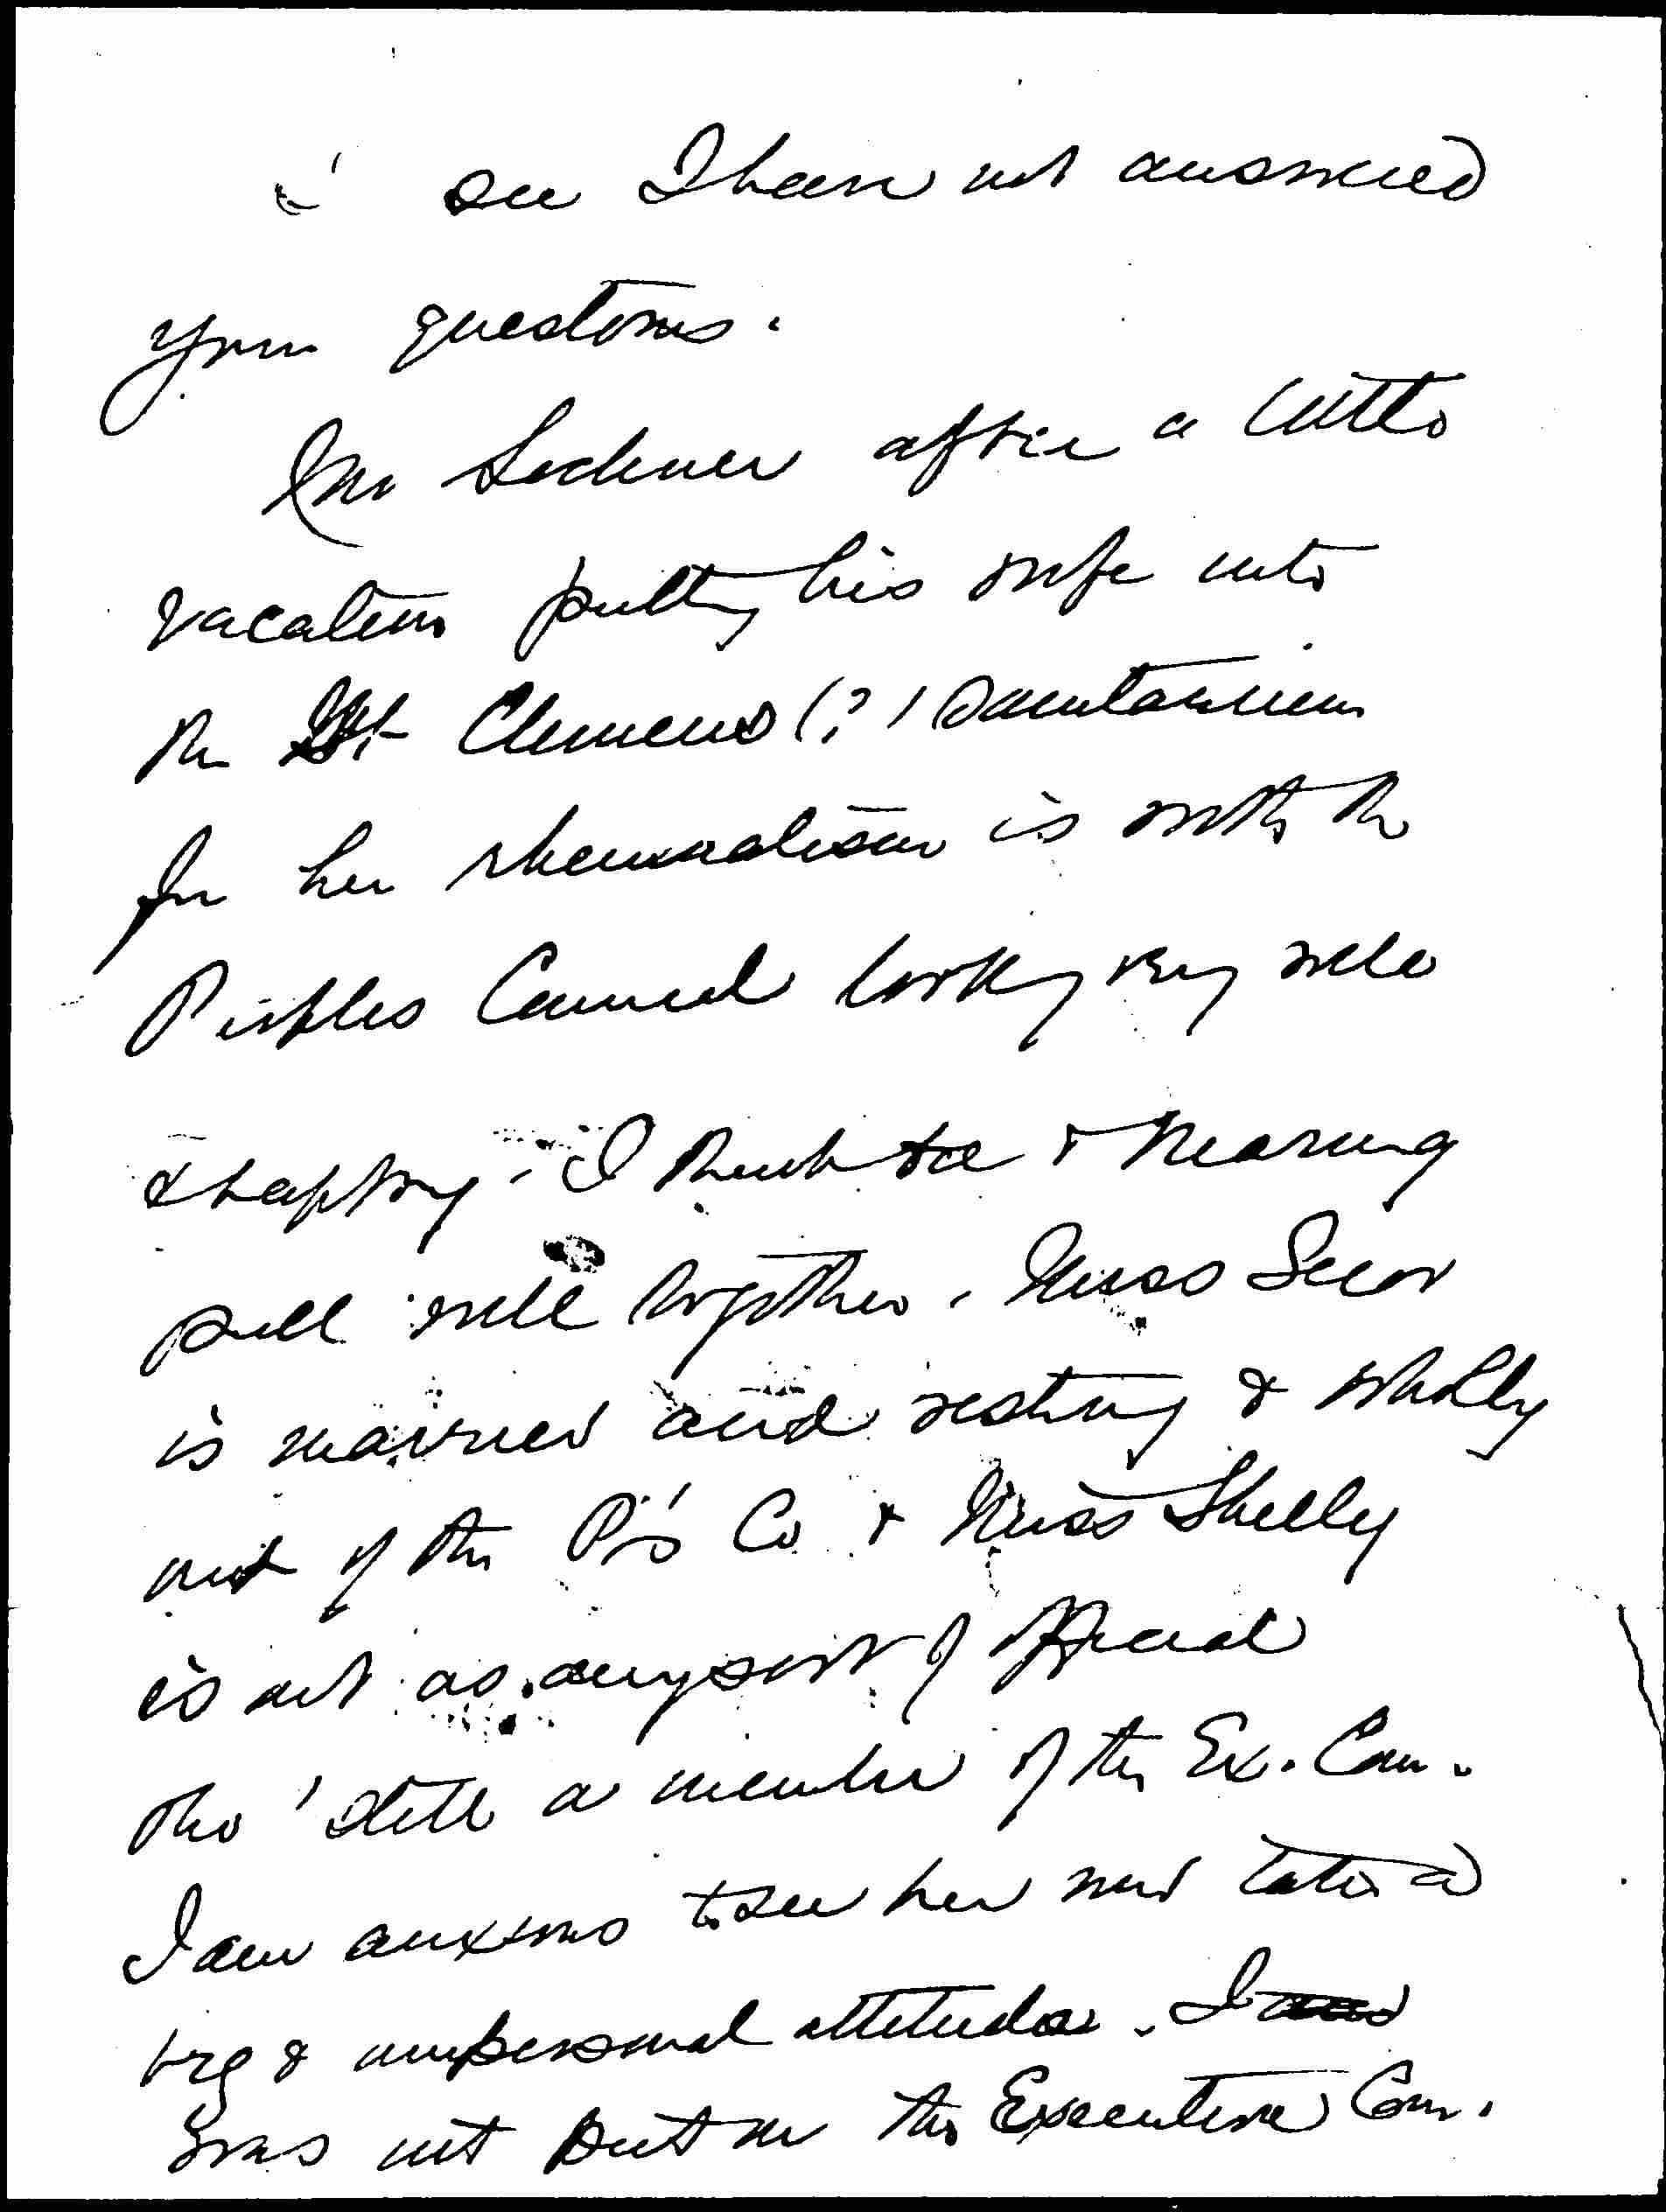 I see I have not answered
your questions.
Mr Lochner after a little
vacation putting his wife into
the Mt Clemens (?) Sanitarium
for her rheumatism is with the
Peoples Council looking very well
& happy. I think he & Nearing
pull well together. Miss Secor
is married and resting & wholly
out of the P's Co & Miss Shelly
is not as any sort of official
tho' still a member of the Ex. Com.
I am anxious to see her now take a
big & impersonal attitude. I
was not put on the Executive Com.